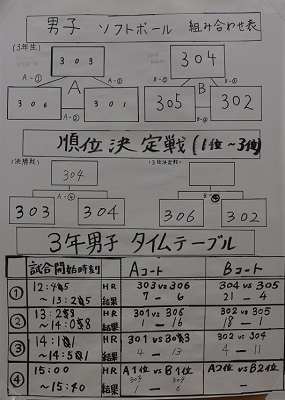 男子 ソフトボール 組み合わせ表
(3年生)
303
304
A-①
A-③
A
B-①
B
306
A-②
301
305
302
順位決定戦(1位~3位)
(決勝戦)
(3位決定戦)
304
A-④
303
304
306
302
3年男子 タイムテーブル
試合開始時刻 Aコート Bコート
① 12:45 HR 303 vs 306 304 vs 305
~13:25 結果 7 - 6 21 - 4
② HR 301 vs 306 302 vs 305
結果 1 - 16 18 - 1
③ HR 301 vs 303 304 vs 302
結果 4 - 13 4 - 11
④ 15:00 HR A1位 vs B1位 A2位 vs B2位
~15:40 結果 303 304
1 - 6 -